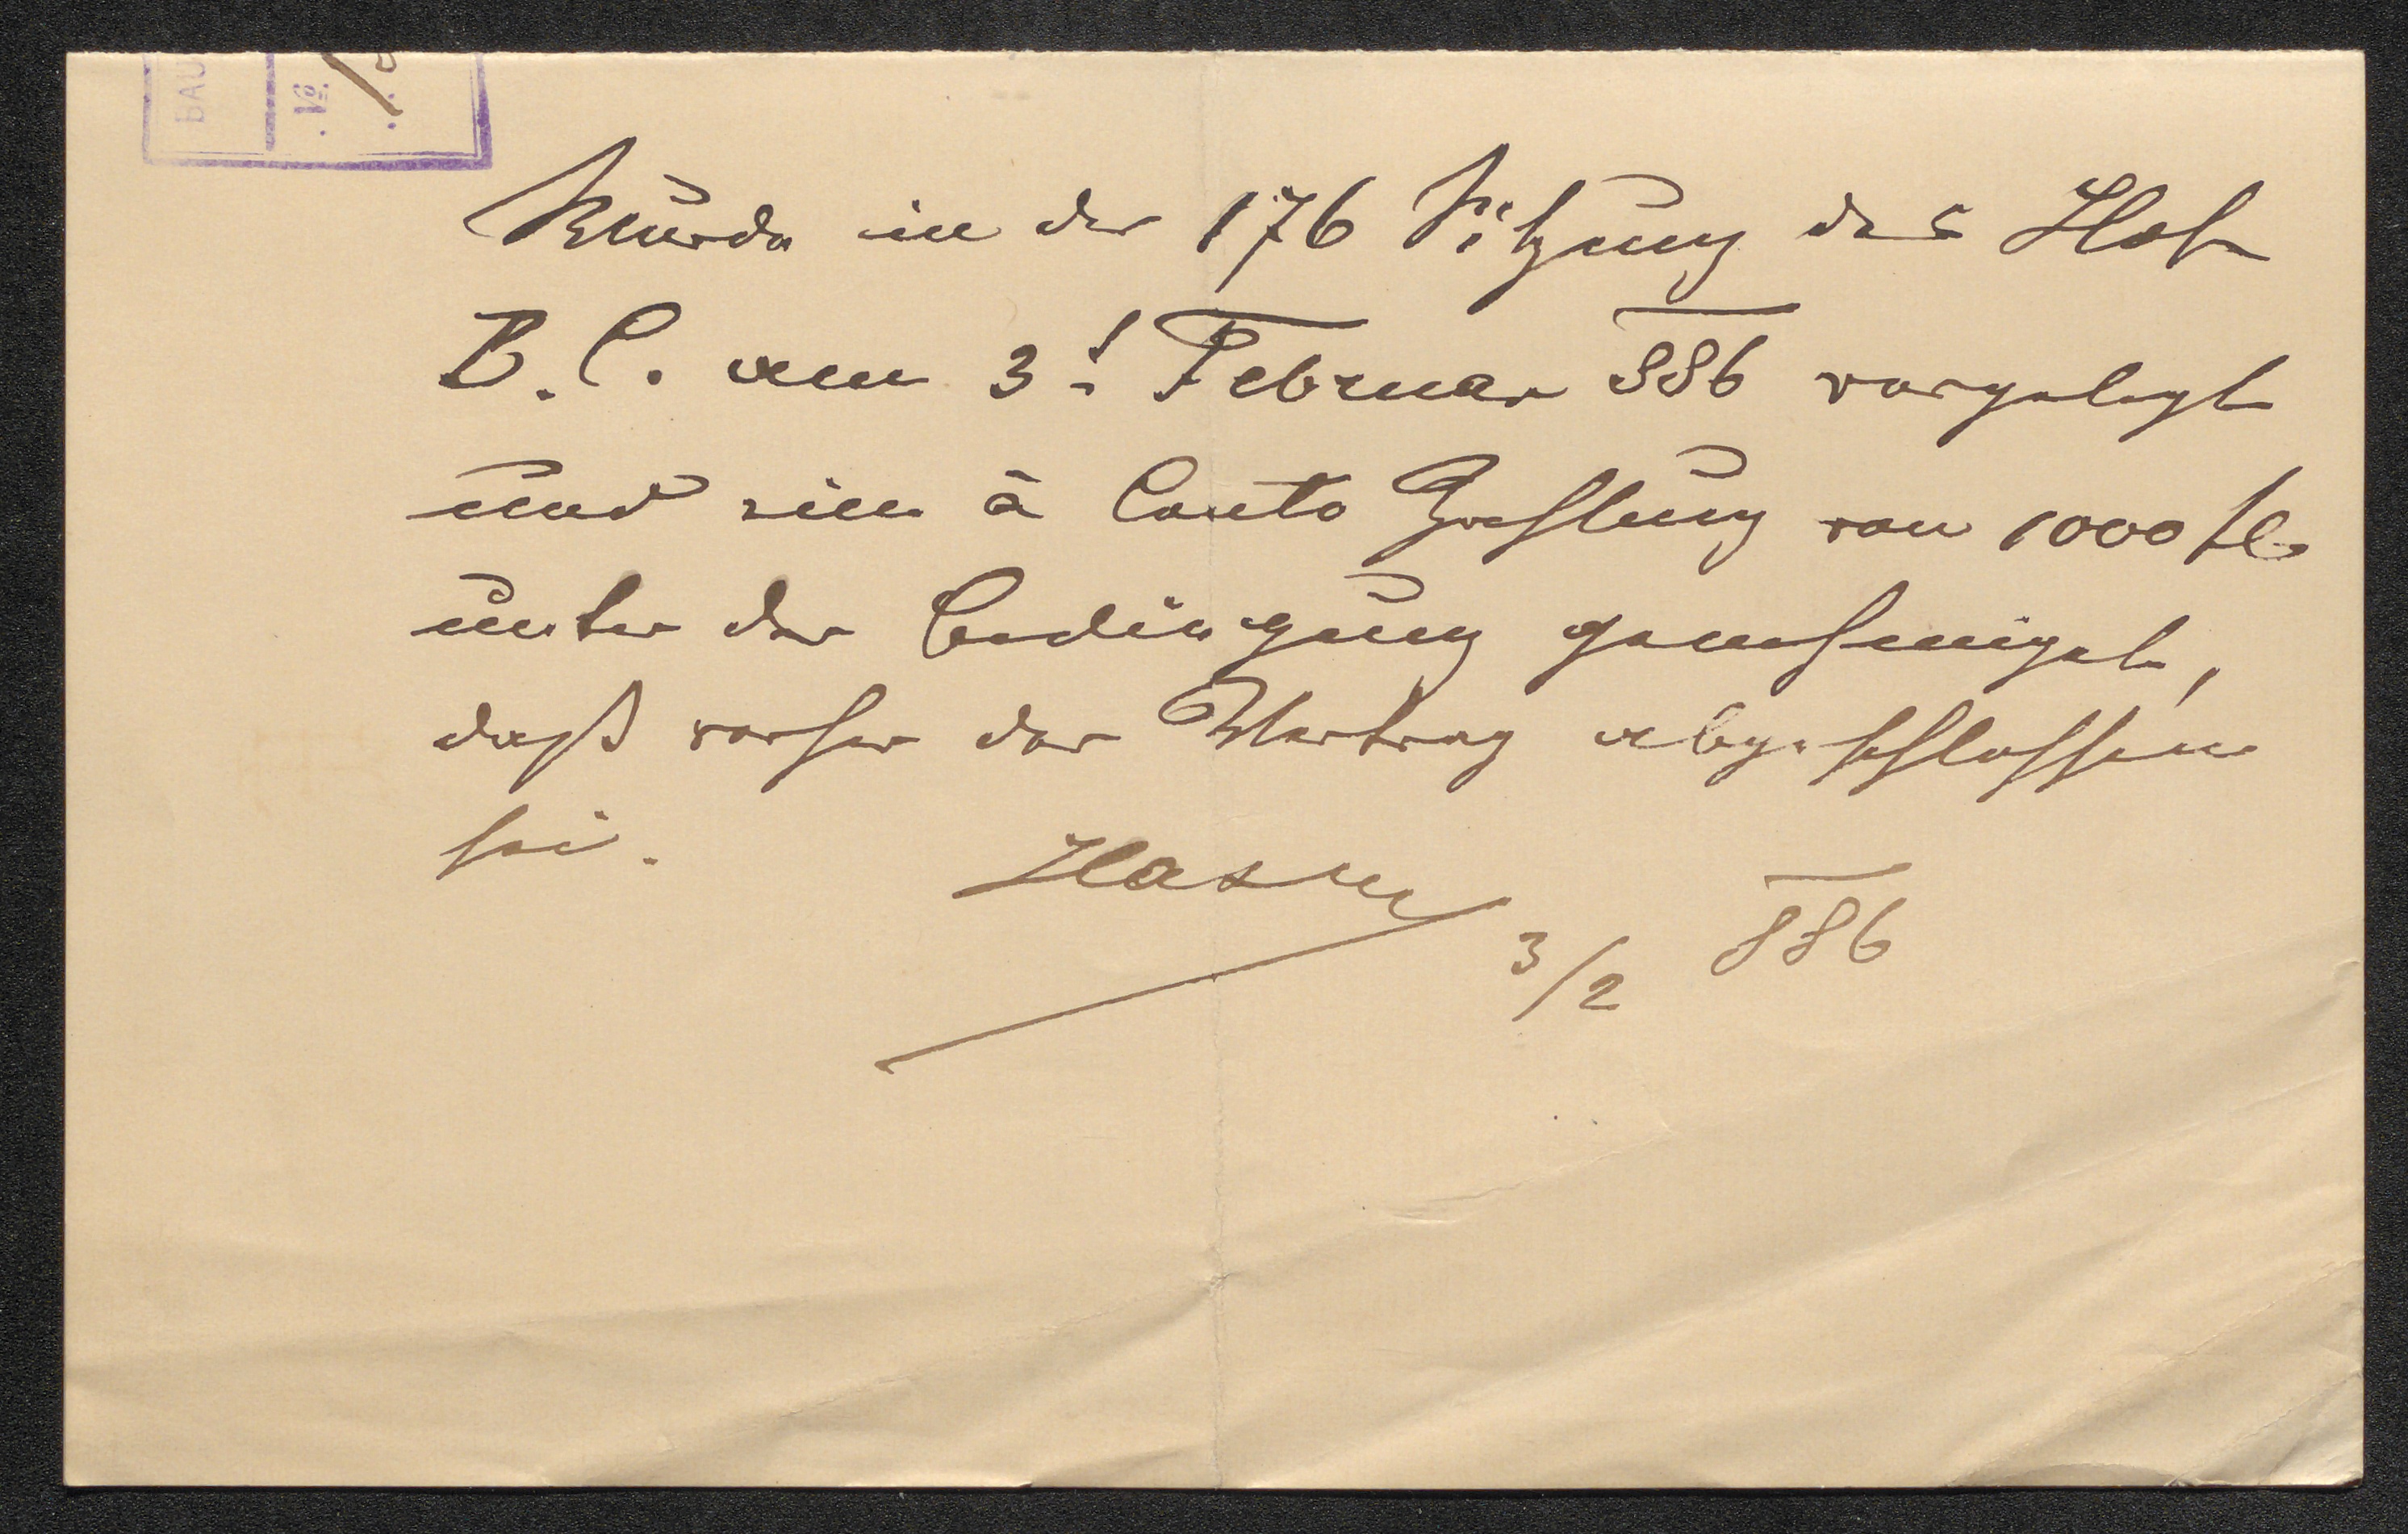 BAU
No.
Wurde in der 176 Sitzung des Hof
B. C. vom 3t Februar 886 vorgelegt
und eine à Conto Zahlung von 1000 fl
unter der Bedingung genehmigt,
daß vorher der Vertrag abgeschlossen
sei.
Hasen
3/2 886